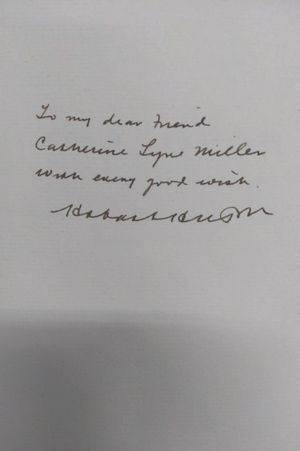 To my dear Friend
Catherine Lyne Miller
with every good wish.